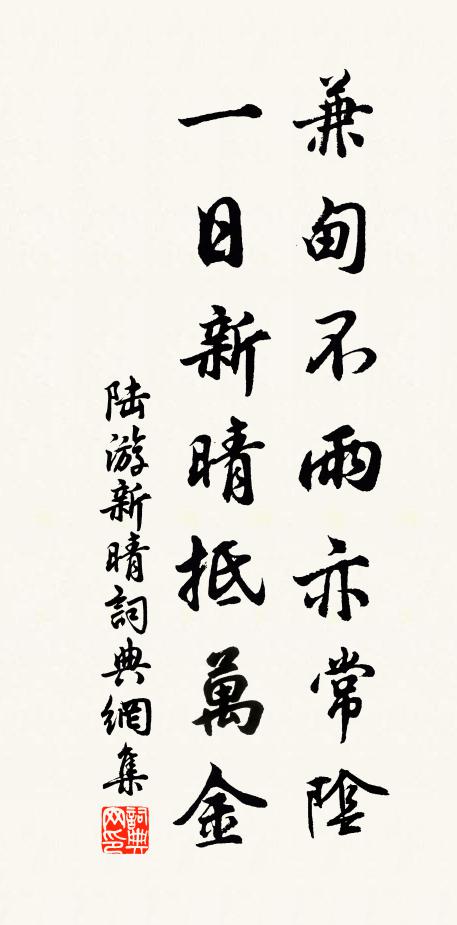 兼旬不雨亦常陰
一日新晴抵萬金
陸游新晴詞典網集
詞典网印